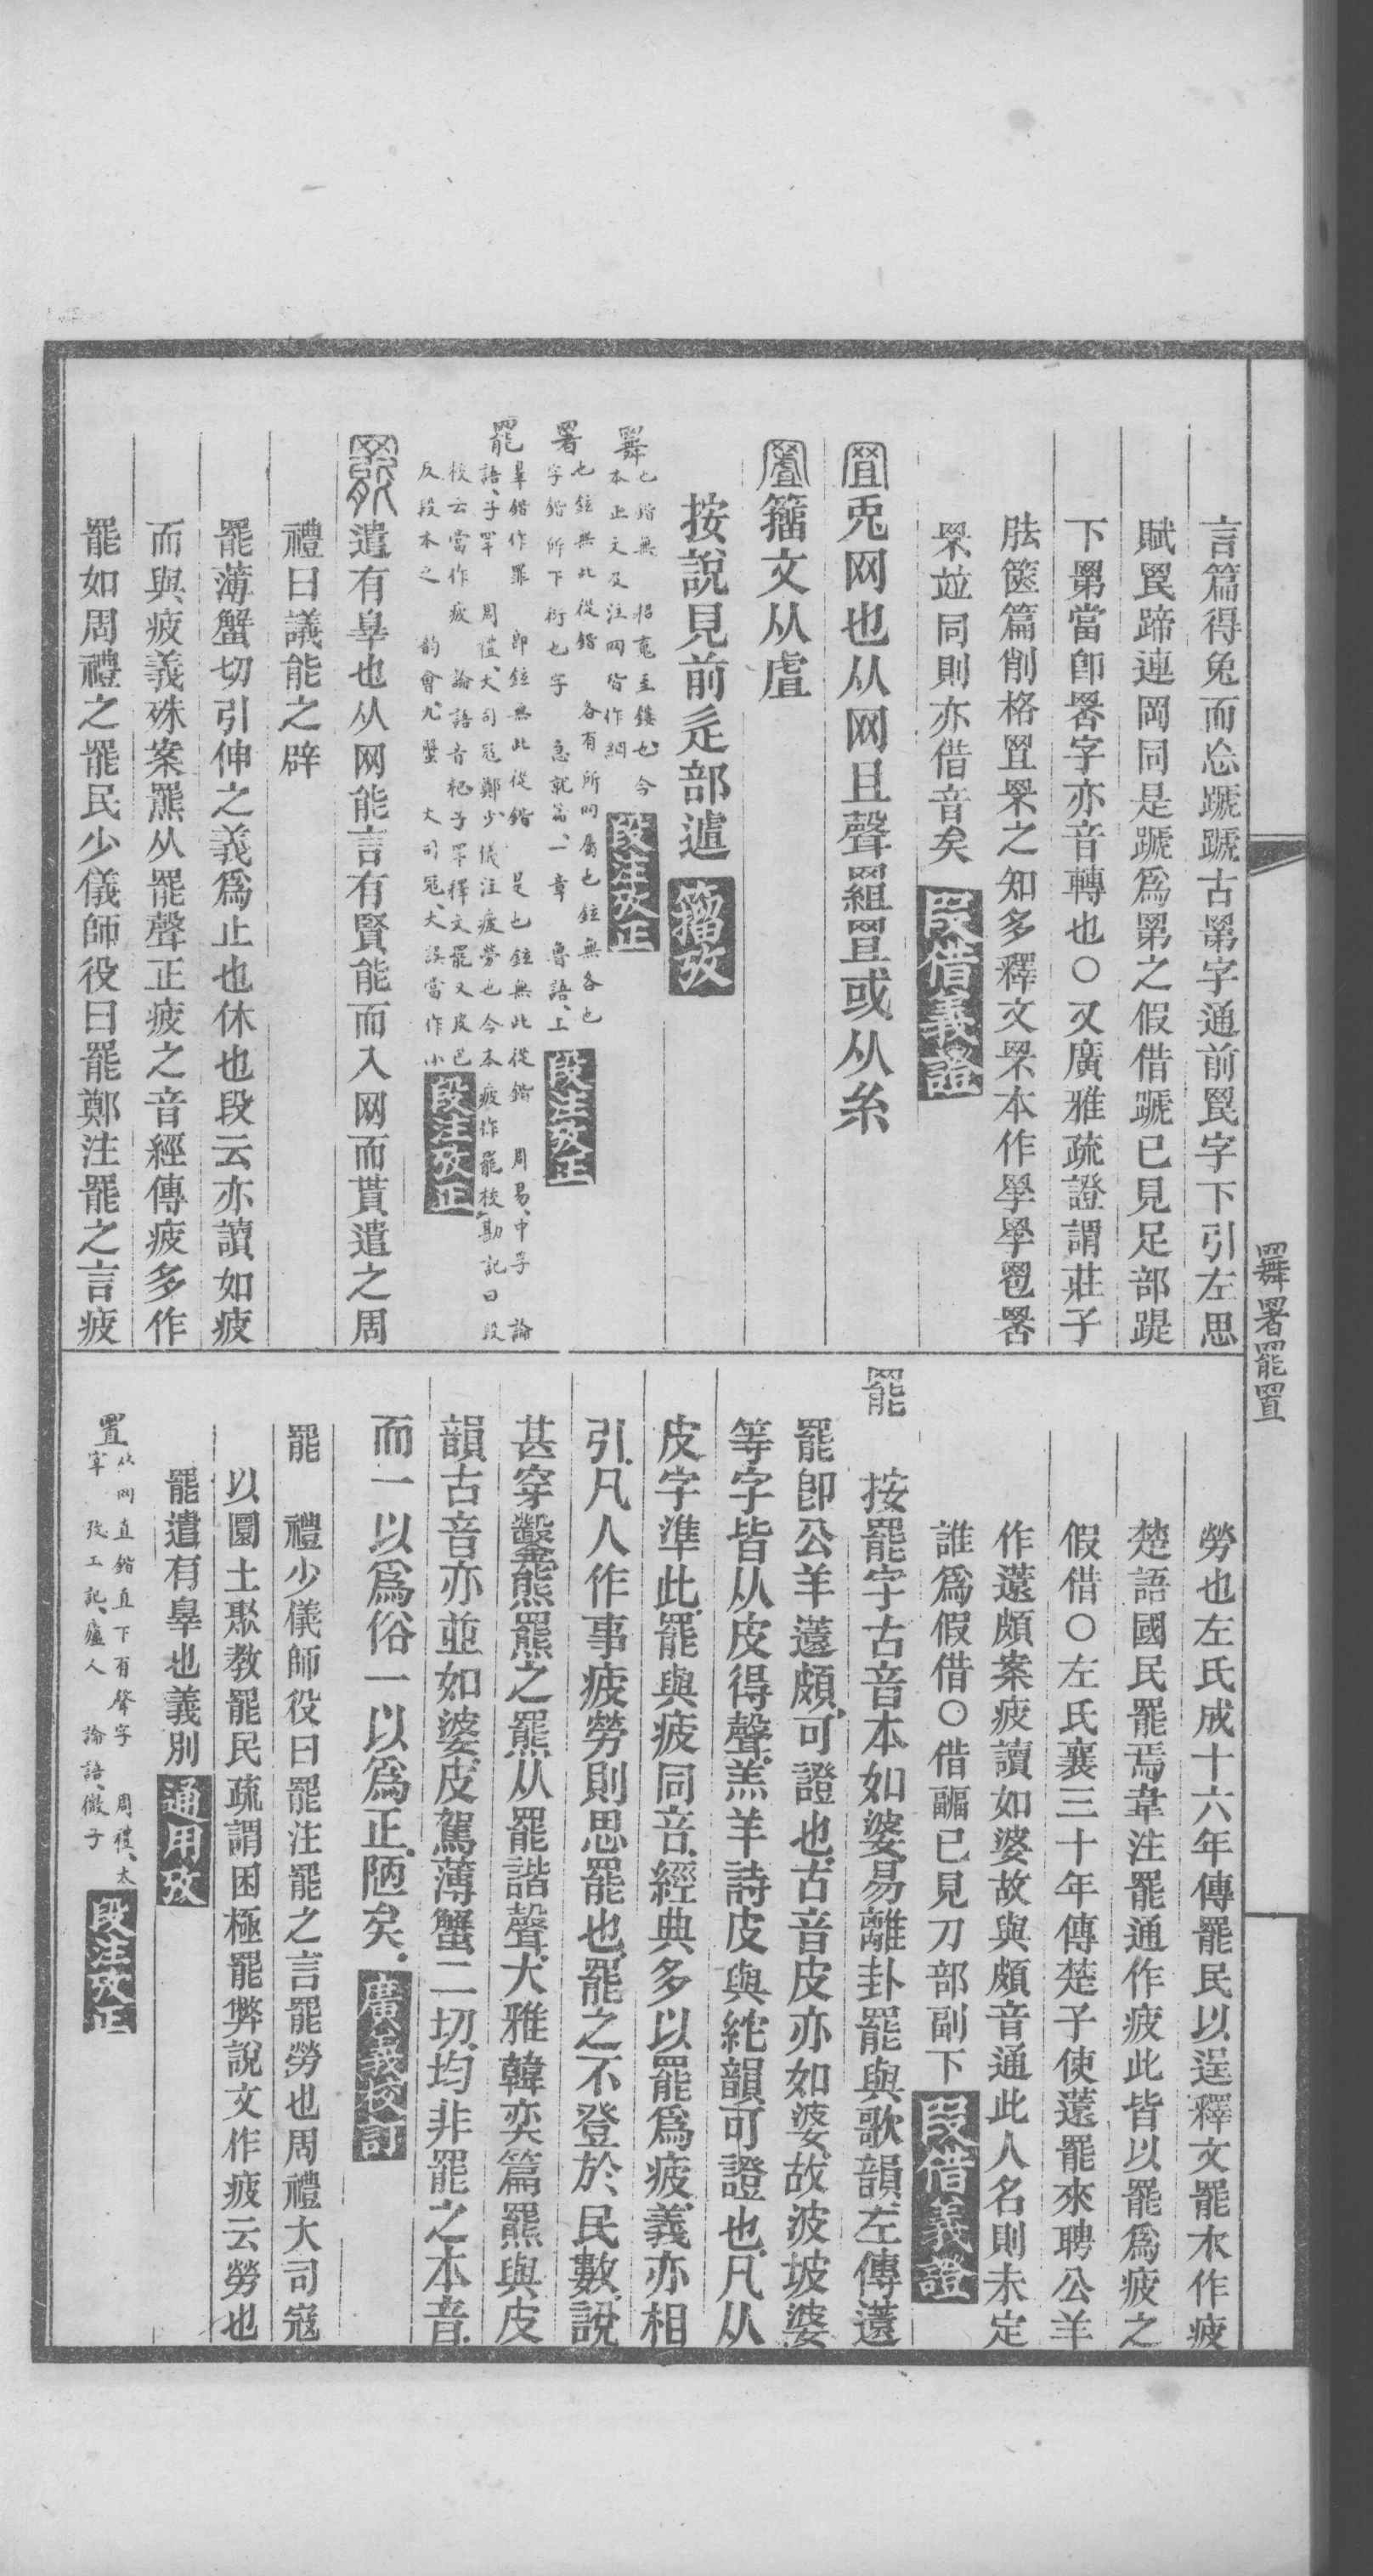 言篇得兔而忘蹏蹏古䍤字通前罠字下引左思
賦罠蹄連岡同是蹏爲䍤之假借蹏已見足部踶
下䍤當卽罯字亦音轉也○又廣雅疏證謂莊子
胠篋篇削格罝罘之知多釋文罘本作學學罦罯
罘竝同則亦借音矣 叚借義證
罝兎网也从网且聲䍱罝或从糸
罝籒文从虘
按說見前辵部遽 籒攷
䍢也鍇無 招䰟王逸也今
本正文及注网皆作網 段注攷正
署也鉉無此從鍇 各有所网屬也鉉無各也
字鍇所下衍也字 急就篇、一章 魯語、上 段注攷正
罷辠鍇作罪 郎鉉無此從鍇 是也鉉無此從鍇 周易、中孚 論
語、子罕 周禮、大司寇鄭少儀注疲勞也今本疲作罷校勘記曰段
校云當作疲 論語音杞子罕釋文罷又皮巳
反段本之 韵會、九蟹 大司寇、大誤當作小 段注攷正
罷遣有辠也从网能言有賢能而入网而貰遣之周
禮曰議能之辟
罷薄蟹切引伸之義爲止也休也段云亦讀如疲
而與疲義殊案羆从罷聲正疲之音經傳疲多作
罷如周禮之罷民少儀師役曰罷鄭注罷之言疲
䍢署罷置
勞也左氏成十六年傳罷民以逞釋文罷本作疲
楚語國民罷焉韋注罷通作疲此皆以罷爲疲之
假借○左氏襄三十年傳楚子使薳罷來聘公羊
作薳頗案疲讀如婆故與頗音通此人名則未定
誰爲假借○借疈已見刀部副下 叚借義證
罷 按罷字古音本如婆易離卦罷與歌韻左傳薳
罷卽公羊薳頗可證也古音皮亦如婆故波坡婆
等字皆从皮得聲羔羊詩皮與紽韻可證也凡从
皮字準此罷與疲同音經典多以罷爲疲義亦相
引凡人作事疲勞則思罷也罷之不登於民數說
甚穿鑿熊羆之羆从罷諧聲大雅韓奕篇羆與皮
韻古音亦並如婆皮駕薄蟹二切均非罷之本音
而一以爲俗一以爲正陋矣 廣義校訂
罷 禮少儀師役曰罷注罷之言罷勞也周禮大司寇
以圜土聚教罷民疏謂困極罷弊說文作疲云勞也
罷遣有辠也義別 通用攷
置从网直鍇直下有聲字 周禮、太
宰 攷工記、廬人 論語、微子 段注攷正